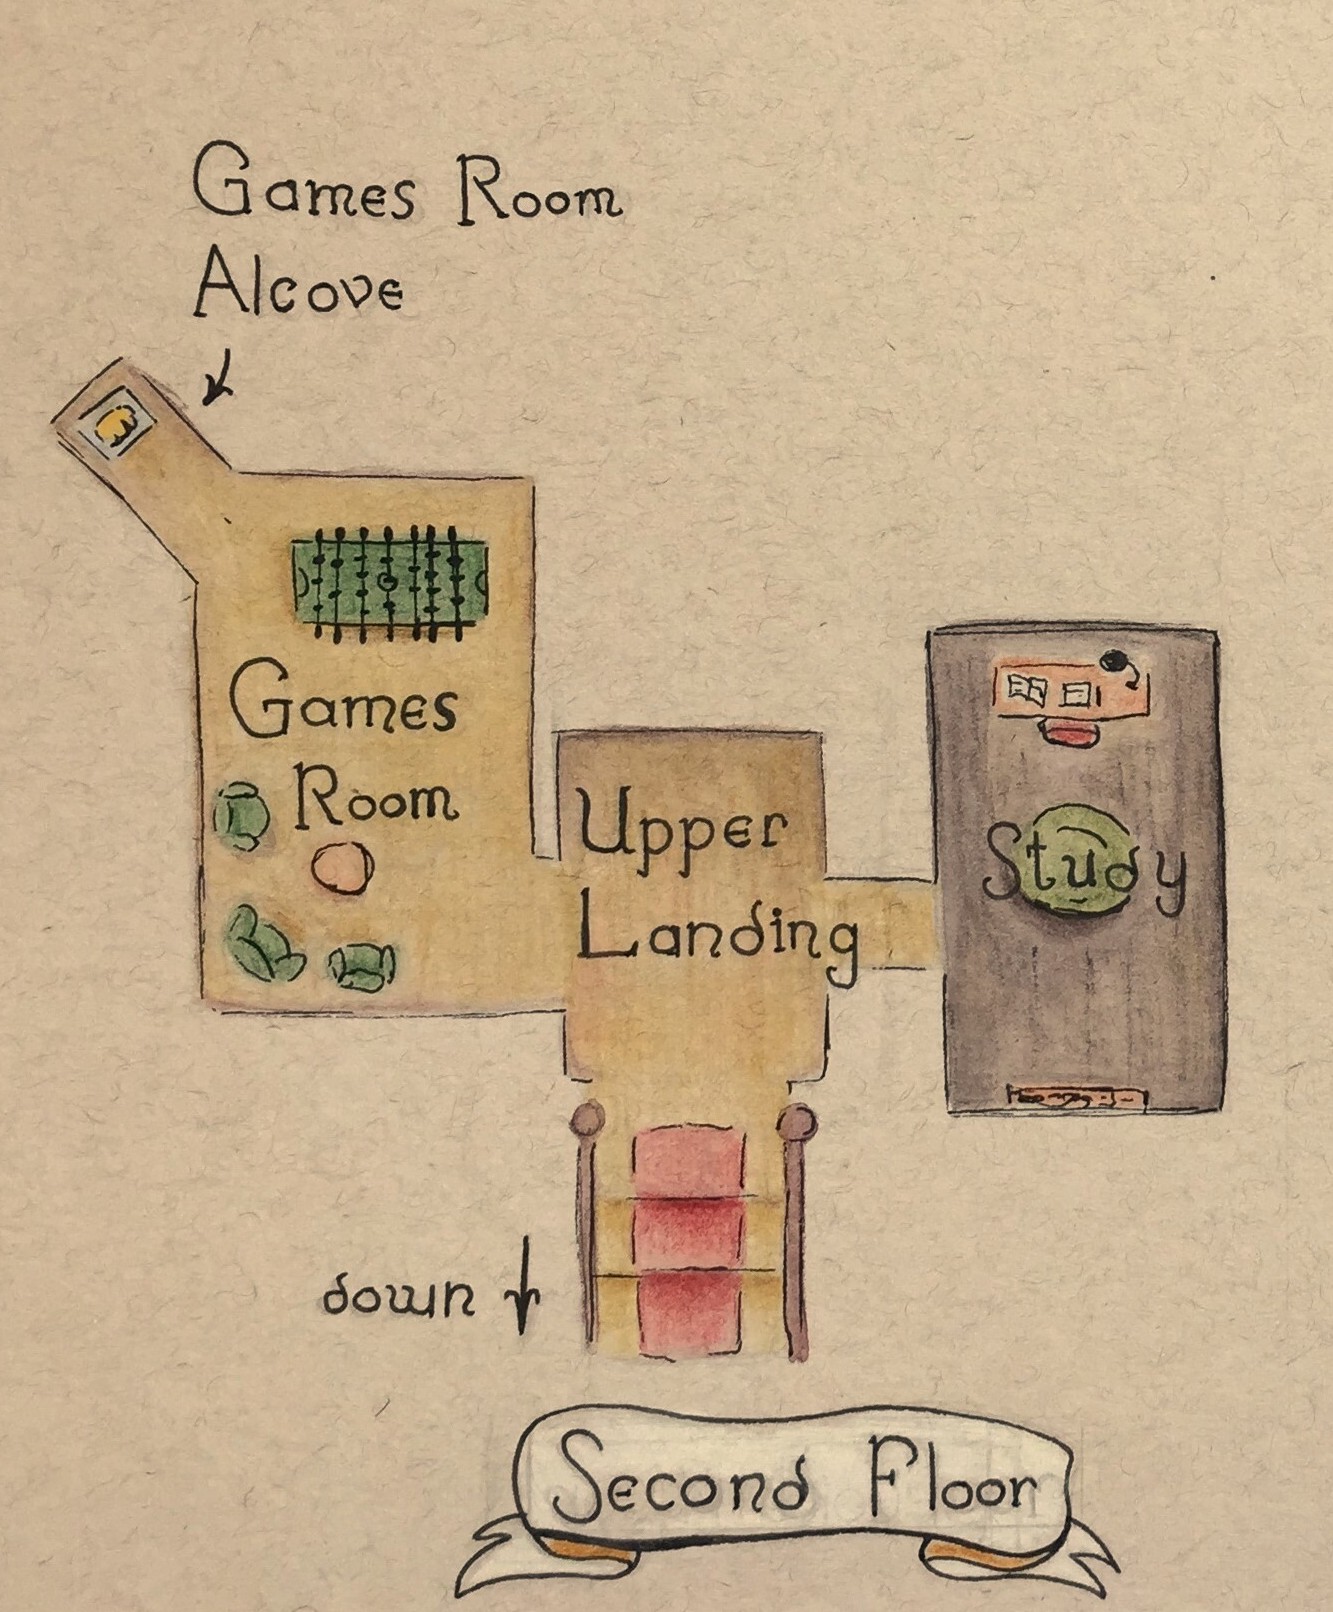 Games Room
Alcove
Games
Room
Upper
Landing
Study
down
Second Floor